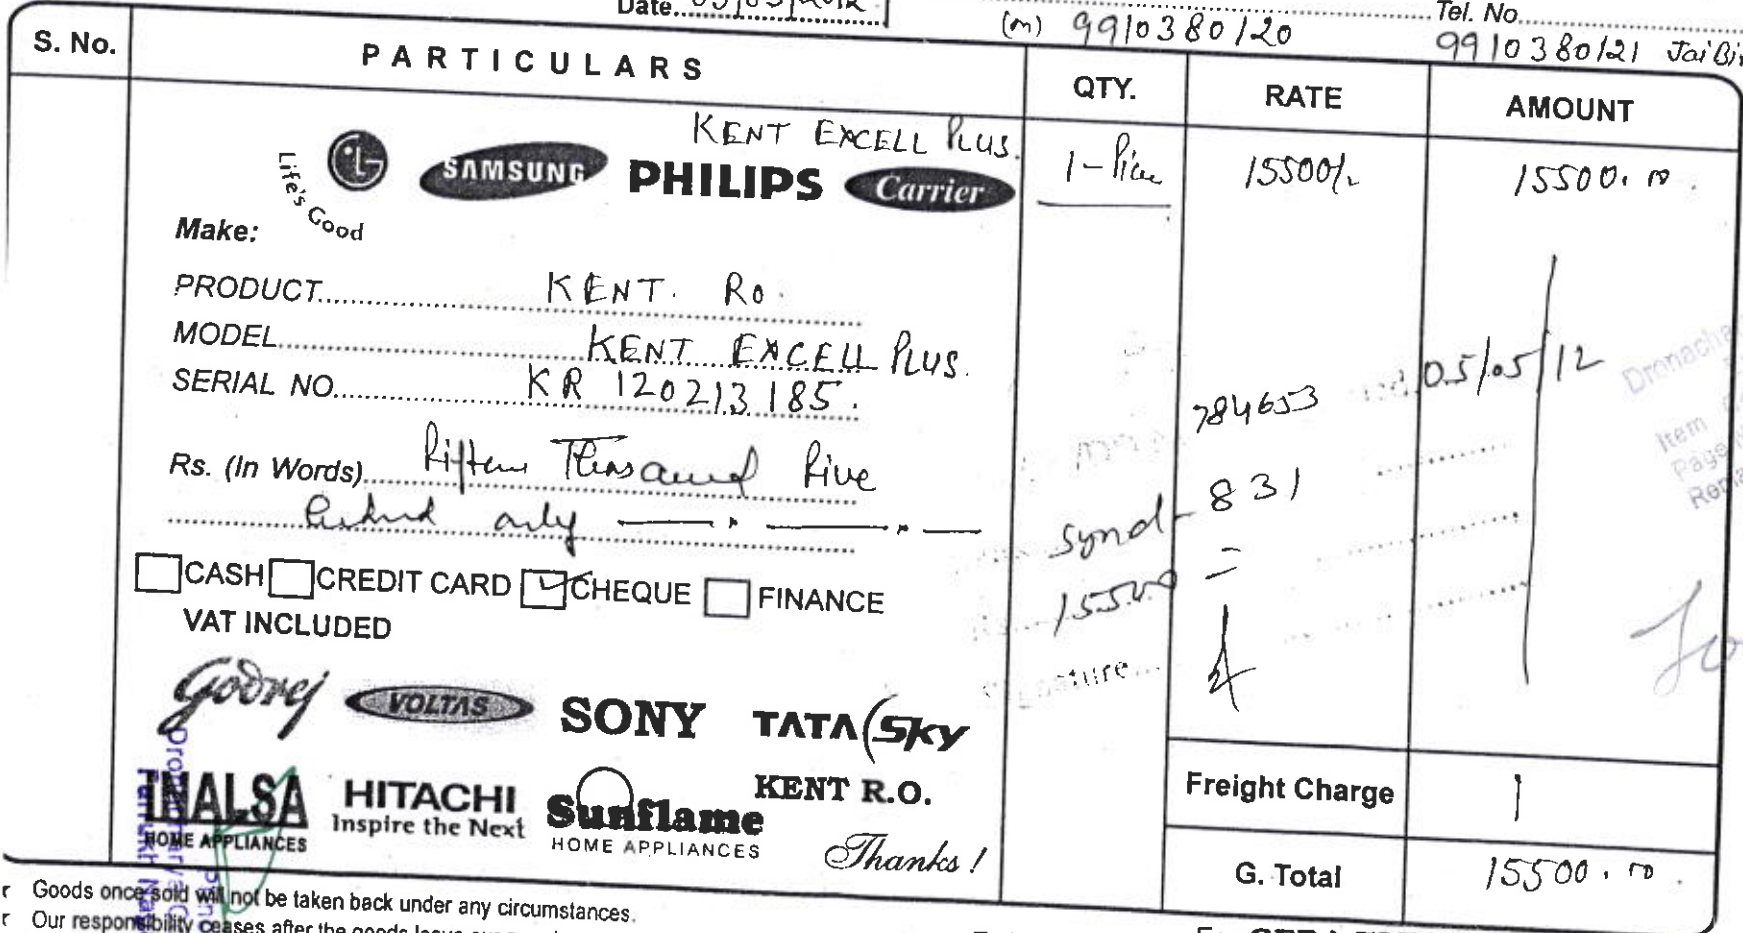 Date 05/05/2012
Tel. No.
(m) 9910380120
9910380121
S. No. PARTICULARS QTY. RATE AMOUNT
KENT EXCELL PLUS. 1- 15500/- 15500.00
LG Life's Good SAMSUNG PHILIPS Carrier
Make:
PRODUCT KENT. RO.
MODEL KENT EXCELL PLUS.
SERIAL NO. KR 120213185.
784653 05/05/12
Rs. (In Words) Fifteen Thousand Five
only
Synd - 831
15500 =
CASH CREDIT CARD CHEQUE FINANCE
VAT INCLUDED
Godrej VOLTAS SONY TATA Sky
INALSA HOME APPLIANCES
HITACHI Inspire the Next
Sunflame HOME APPLIANCES
KENT R.O.
Thanks!
Freight Charge
G. Total 15500.00
Goods once sold will not be taken back under any circumstances.
Our responsibility ceases after the goods